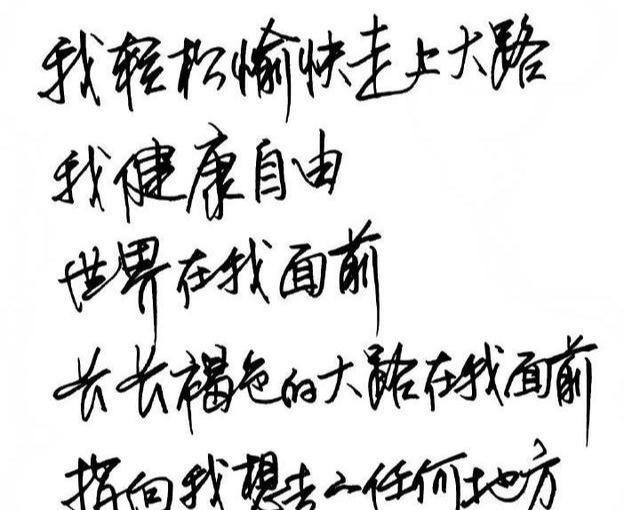 我轻松愉快走上大路
我健康自由
世界在我面前
长长褐色的大路在我面前
指向我想去的任何地方